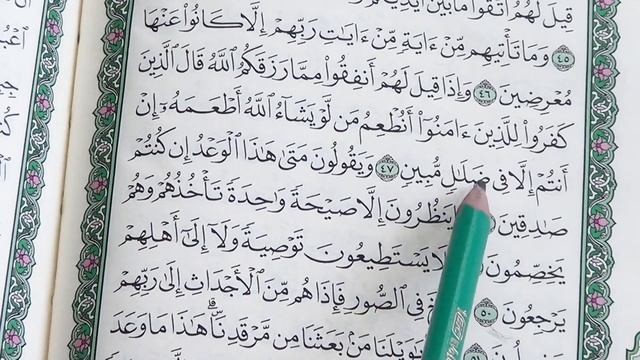 قِيلَ لَهُمُ ٱتَّقُوا۟ مَا بَيْنَ أَيْدِيكُمْ
٤٥ وَمَا تَأْتِيهِم مِّنْ ءَايَةٍ مِّنْ ءَايَٰتِ رَبِّهِمْ إِلَّا كَانُوا۟ عَنْهَا
مُعْرِضِينَ ٤٦ وَإِذَا قِيلَ لَهُمْ أَنفِقُوا۟ مِمَّا رَزَقَكُمُ ٱللَّهُ قَالَ ٱلَّذِينَ
كَفَرُوا۟ لِلَّذِينَ ءَامَنُوٓا۟ أَنُطْعِمُ مَن لَّوْ يَشَآءُ ٱللَّهُ أَطْعَمَهُۥٓ إِنْ
أَنتُمْ إِلَّا فِى ضَلَٰلٍ مُّبِينٍ ٤٧ وَيَقُولُونَ مَتَىٰ هَٰذَا ٱلْوَعْدُ إِن كُنتُمْ
صَٰدِقِينَ يَنظُرُونَ إِلَّا صَيْحَةً وَٰحِدَةً تَأْخُذُهُمْ وَهُمْ
يَخِصِّمُونَ يَسْتَطِيعُونَ تَوْصِيَةً وَلَآ إِلَىٰٓ أَهْلِهِمْ
يَرْجِعُونَ ٥٠ فِى ٱلصُّورِ فَإِذَا هُم مِّنَ ٱلْأَجْدَاثِ إِلَىٰ رَبِّهِمْ
يَٰوَيْلَنَا مَنۢ بَعَثَنَا مِن مَّرْقَدِنَا ۜ هَٰذَا مَا وَعَدَ